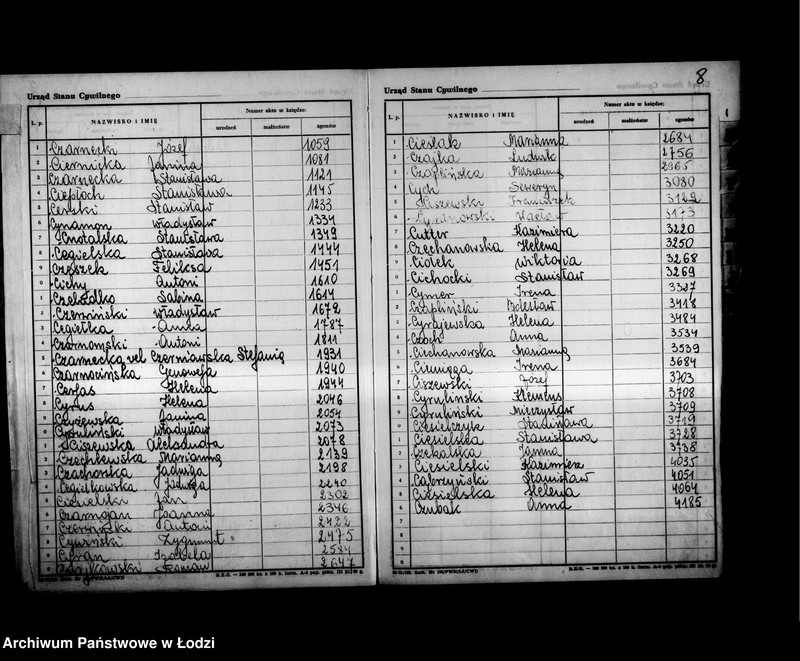 8
Urząd Stanu Cywilnego
L. p. NAZWISKO i IMIĘ Numer aktu w księdze:
urodzeń małżeństw zgonów
1 Czarnecki Józef 1059
2 Ciernicka Janina 1081
3 Czarnecka Stanisława 1121
4 Ciepłoch Stanisława 1145
5 Stanisław 1233
6 Cynamon Władysław 1334
7 Stanisława 1349
8 Cegielska Stanisława 1444
9 Feliksa 1451
0 Cichy Antoni 1610
1 Sabina 1614
2 Czerwiński Władysław 1672
3 Cegiełka Anna 1787
4 Antoni 1811
5 Czarnecka vel Czerniawska Stefania 1931
6 Czarnocińska Genowefa 1940
7 Helena 1944
8 Cyrus Helena 2046
9 Janina 2054
0 Władysław 2073
1 Ciszewska Aleksandra 2078
2 Marianna 2139
3 Czachorska Jadwiga 2198
4 Cegiełkowska Jadwiga 2240
5 Jan 2302
6 Joanna 2346
7 Czerwiński Antoni 2422
8 Cywiński Zygmunt 2475
9 Cyran Izabela 2584
0 Roman 2647
Urząd Stanu Cywilnego
L. p. NAZWISKO i IMIĘ Numer aktu w księdze:
urodzeń małżeństw zgonów
1 Cieślak Marianna 2684
2 Czajka Ludwik 2756
3 Czaplińska Marianna 2965
4 Cych Seweryn 3080
5 Ciszewski Franciszek 3129
6 Cyranowski Wacław 3173
7 Cutter Kazimiera 3220
8 Czechanowska Helena 3250
9 Ciołek Wiktoria 3268
0 Cichocki Stanisław 3269
1 Cymer Irena
2 Czapliński Bolesław 3418
3 Helena 3484
4 Czoch Anna 3534
5 Ciechanowska Marianna 3539
6 Ciemięga Irena 3684
7 Ciszewski Józef 3703
8 Cyruliński Klemens 3708
9 Cyruliński Mieczysław 3709
0 Ciesielczyk Stanisława 3719
1 Ciesielska Stanisława 3728
2 Czekalska Janina 3738
3 Ciesielski Kazimierz 4035
4 Stanisław 4051
5 Ciesielska Helena 4064
6 Czubak Anna 4185
7
8
9
0
Archiwum Państwowe w Łodzi